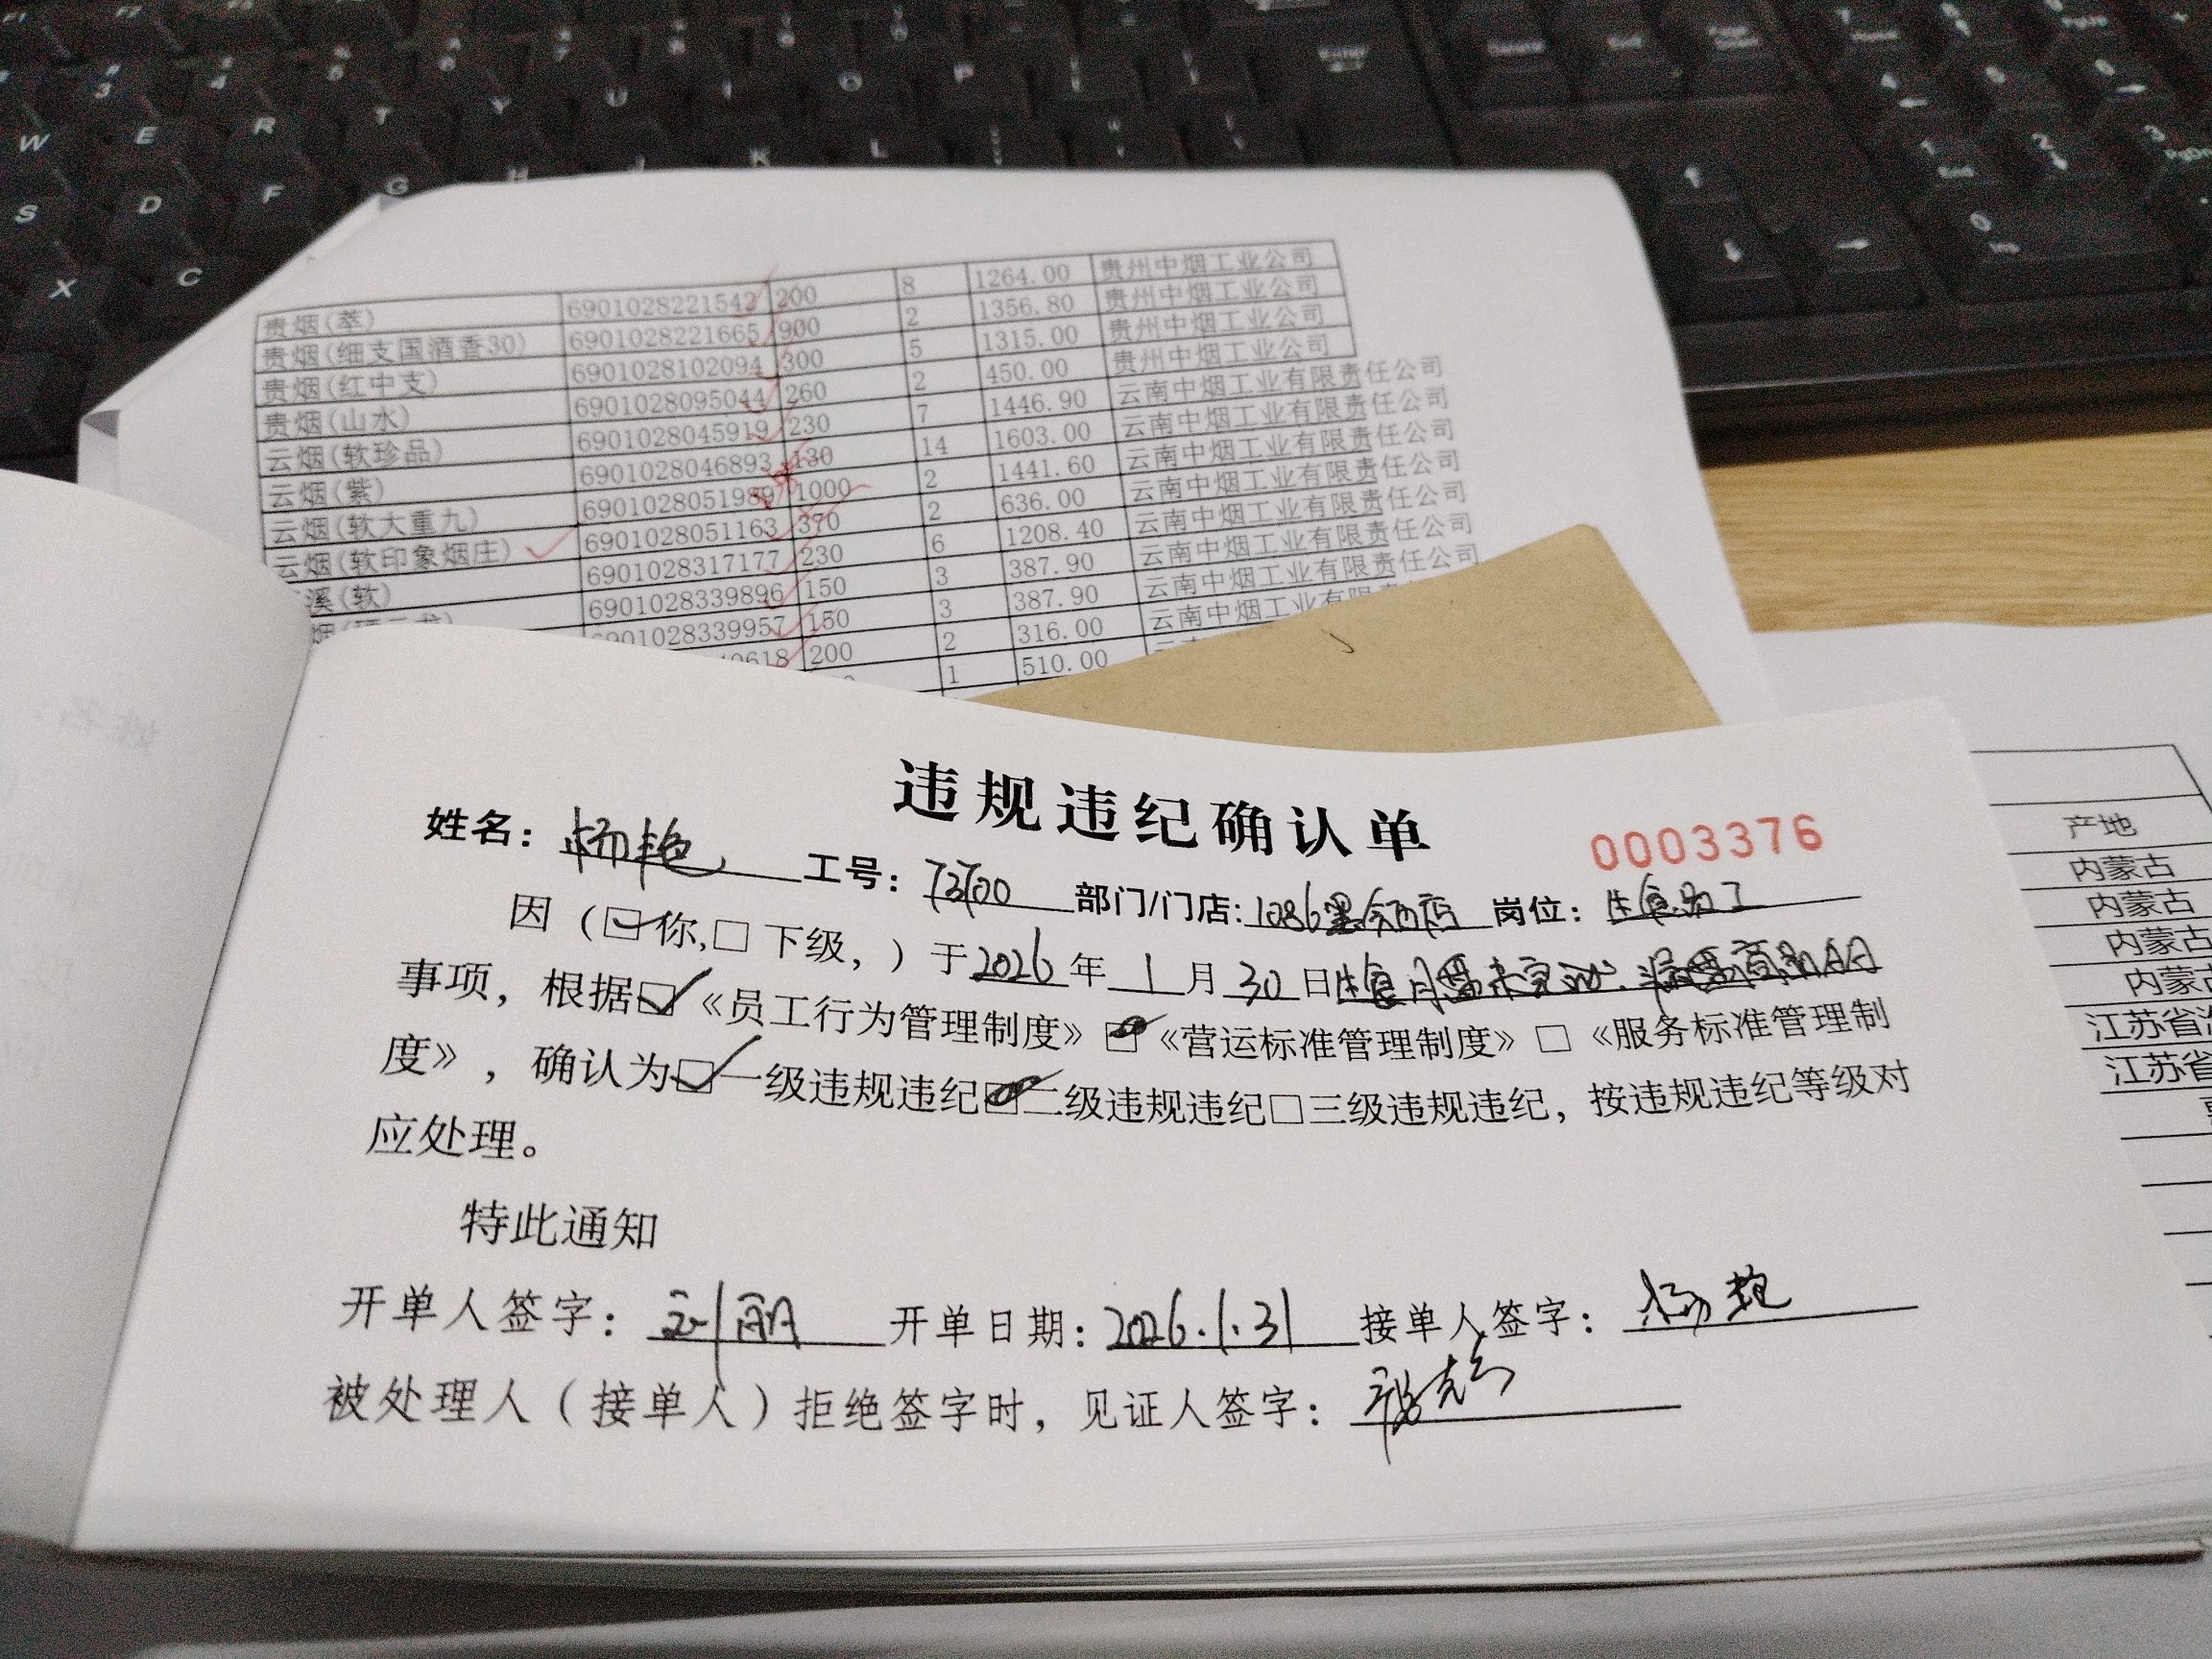 贵烟(萃) 6901028221542 200 8 1264.00 贵州中烟工业公司
贵烟(细支国酒香30) 6901028221665 900 2 1356.80 贵州中烟工业公司
贵烟(红中支) 6901028102094 300 5 1315.00 贵州中烟工业公司
贵烟(山水) 6901028095044 260 2 450.00 贵州中烟工业公司
云烟(软珍品) 6901028045919 230 7 1446.90 云南中烟工业有限责任公司
云烟(紫) 6901028046893 130 14 1603.00 云南中烟工业有限责任公司
云烟(软大重九) 6901028051989 1000 2 1441.60 云南中烟工业有限责任公司
云烟(软印象烟庄) 6901028051163 370 2 636.00 云南中烟工业有限责任公司
溪(软) 6901028317177 230 6 1208.40 云南中烟工业有限责任公司
6901028339896 150 3 387.90 云南中烟工业有限责任公司
6901028339957 150 3 387.90 云南中烟工业有限责任公司
200 2 316.00 云南中烟工业有限
1 510.00
违规违纪确认单
0003376
姓名: 杨艳 工号: 部门/门店: 1086 岗位: 生食员工
因(你,下级,)于2026年1月30日生食月盘未完成
事项,根据《员工行为管理制度》《营运标准管理制度》《服务标准管理制
度》,确认为一级违规违纪二级违规违纪三级违规违纪,按违规违纪等级对
应处理。
特此通知
开单人签字: 刘丽 开单日期: 2026.1.31 接单人签字: 杨艳
被处理人(接单人)拒绝签字时,见证人签字:
产地
内蒙古
内蒙古
内蒙古
内蒙古
江苏省
江苏省